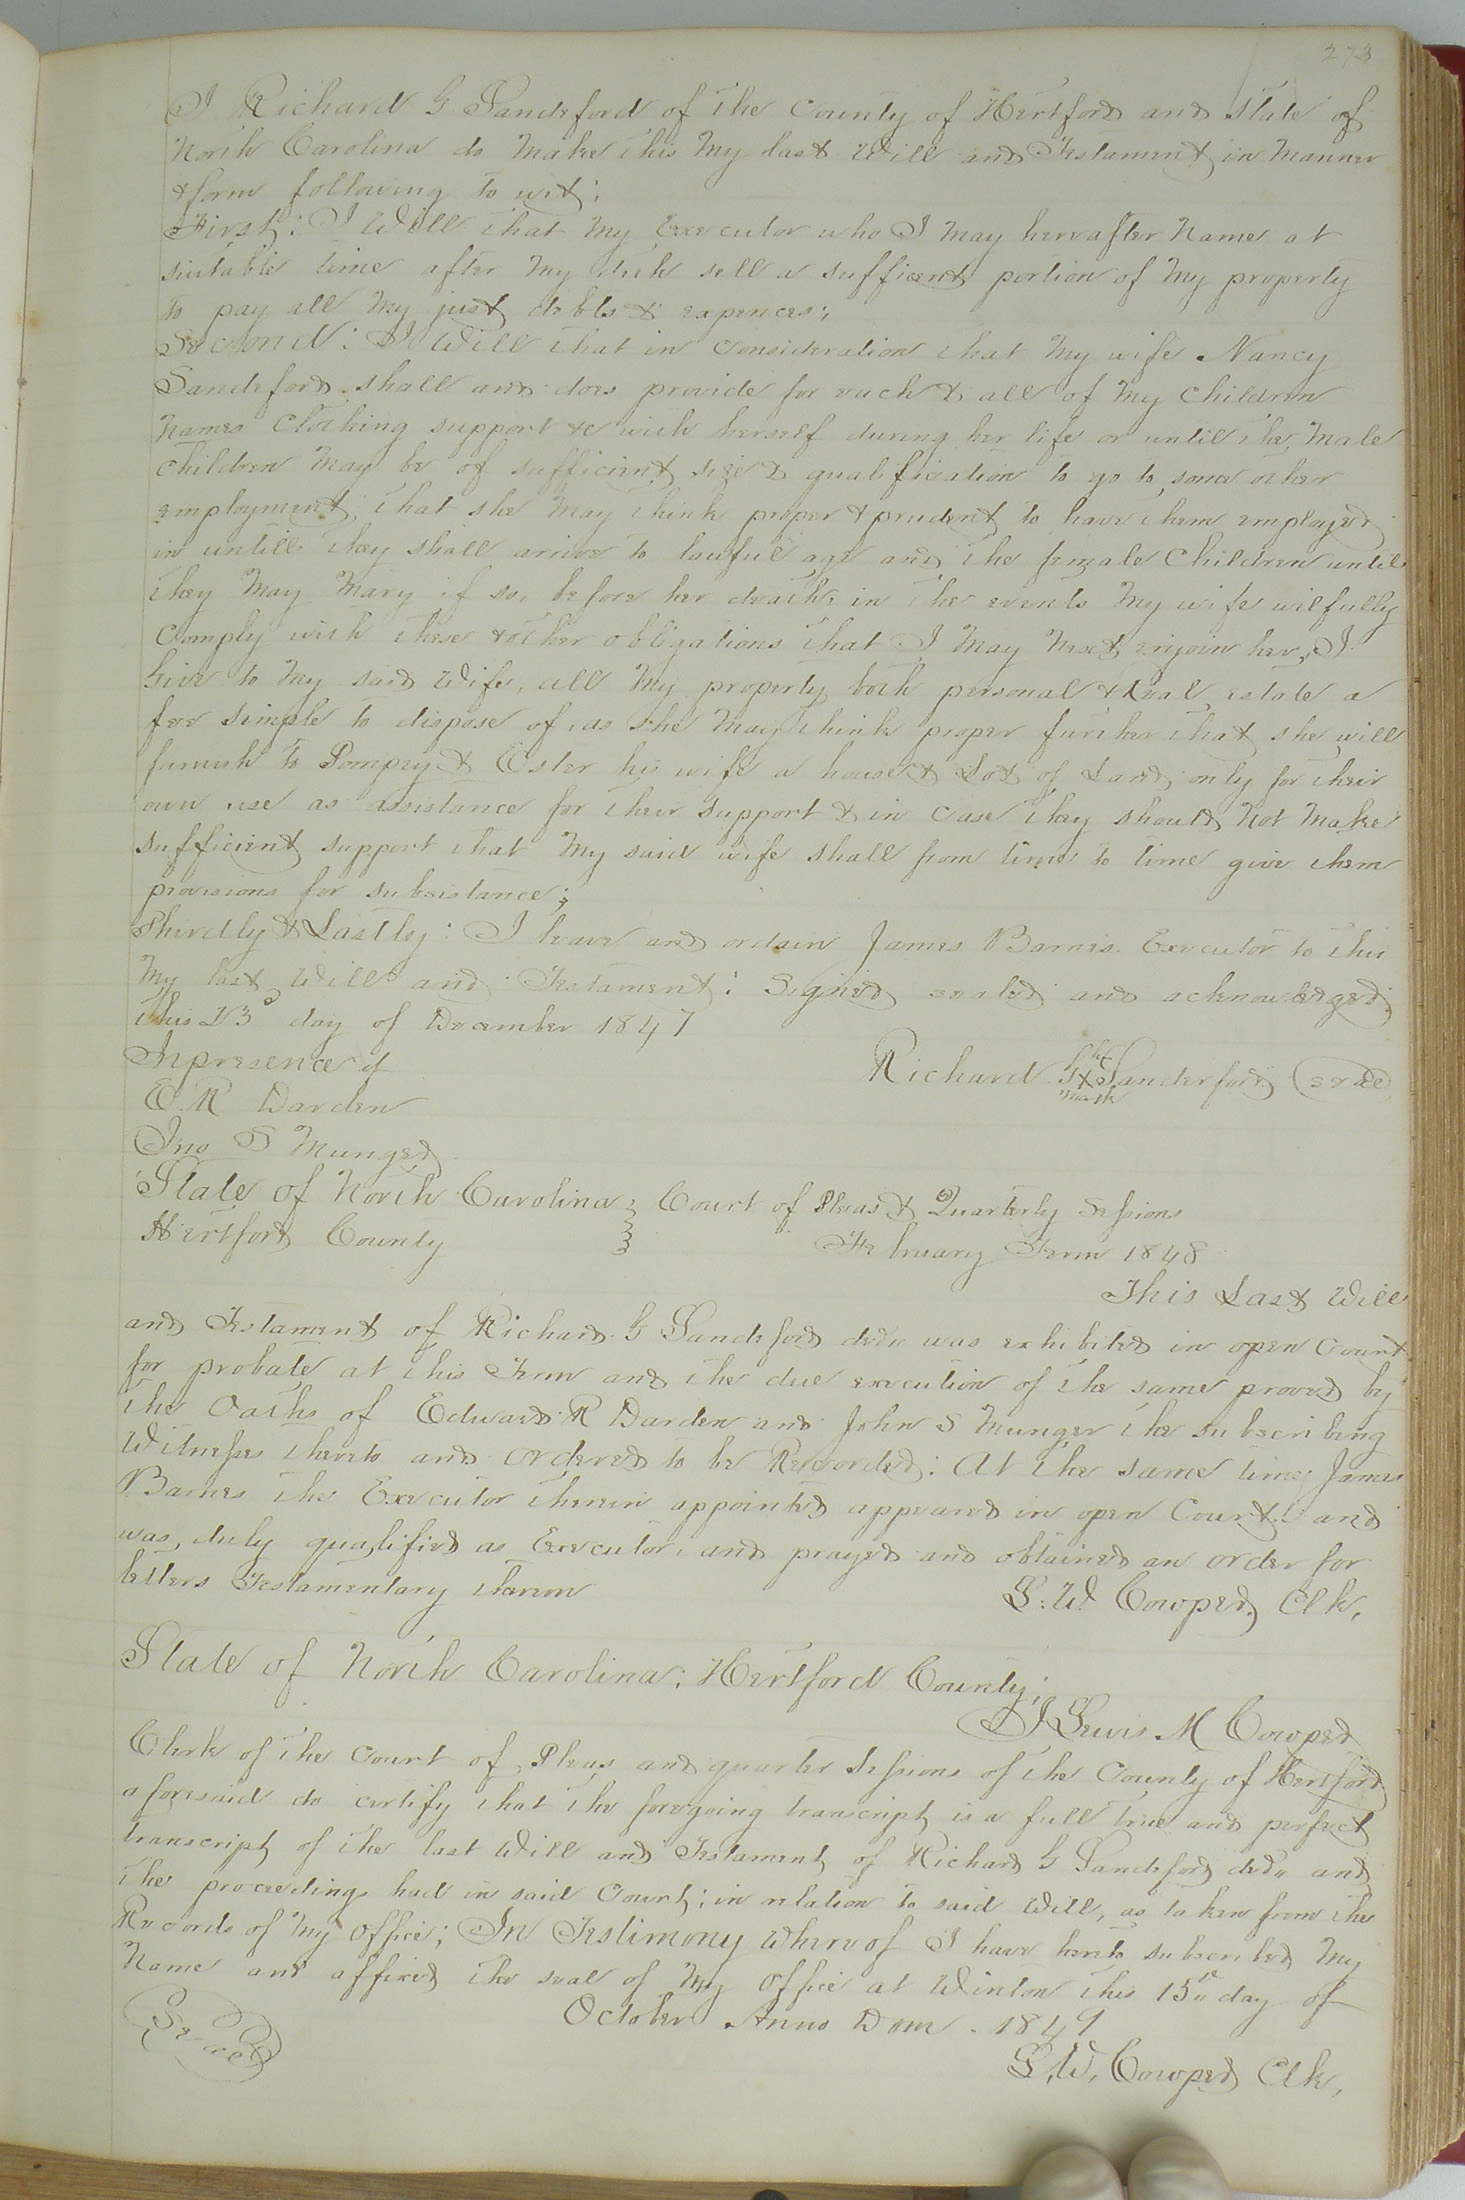 273
I Richard G Sandeford of the County of Hertford and State of
North Carolina do make this my last Will and Testament in manner
& form following to wit;
First: I Will that my Executor who I may hereafter name at
suitable time after my deth sell a sufficent portion of my property
to pay all my just debts & expences;
Second: I Will that in consideration that my wife Nancy
Sandeford shall and does provide for each & all of my children
names Clothing support &c with herself during her life or until the male
children may be of sufficient size & qualification to go to some other
employment, that she may think proper & prudent to have them employed
in untill they shall arive to lawful age and the female Children until
they may mary if so, before her death, in the events my wife wilfully
comply with these & other obligations that I may next, enjoin her, I
Give to my said Wife, all my property both personal & Real estate a
fee simple to dispose of, as she may think proper further that she will
furnish to Pompey & Ester his wife a house & Lot of Land, only for their
own use as assistance for their support & in case they should not make
sufficient support that my said wife shall from time to time give them
provisions for subsistance;
Thirdly & Lastly: I leave and ordain James Barnes Executor to this
my last Will and Testament: Signed sealed and acknowledged
this 23d day of December 1847
In presence of
Richard G his X mark Sandeford (seal)
E R Darden
Jno S Munger
State of North Carolina } Court of Pleas & Quarterly Sessions
Hertford County } February Term 1848
This Last Will
and Testament of Richard G Sandeford decd was exhibited in open Court
for probate at this Term and the due execution of the same proved by
the Oaths of Edward R Darden and John S Munger the subscribing
Witnesses thereto and ordered to be Recorded: At the same time James
Barnes the Executor therein appointed appeared in open Court and
was, duly qualified as Executor, and prayed and obtained an order for
letters Testamentary thereon
L. W Cowper, Clk,
State of North Carolina; Hertford County;
I Lewis M Cowper
Clerk of the Court of Pleas and quarter Sessions of the County of Hertford
aforesaid do certify that the foregoing transcript is a full true and perfect
transcript of the last Will and Testament of Richard G Sandeford decd and
the proceedings had in said Court; in relation to said Will, as taken from the
Records of my office; In Testimony Whereof I have hereto subscribed my
name and affixed the seal of my Office at Winton this 15th day of
October Anno Dom. 1849
Seal
L, W, Cowper Clk,